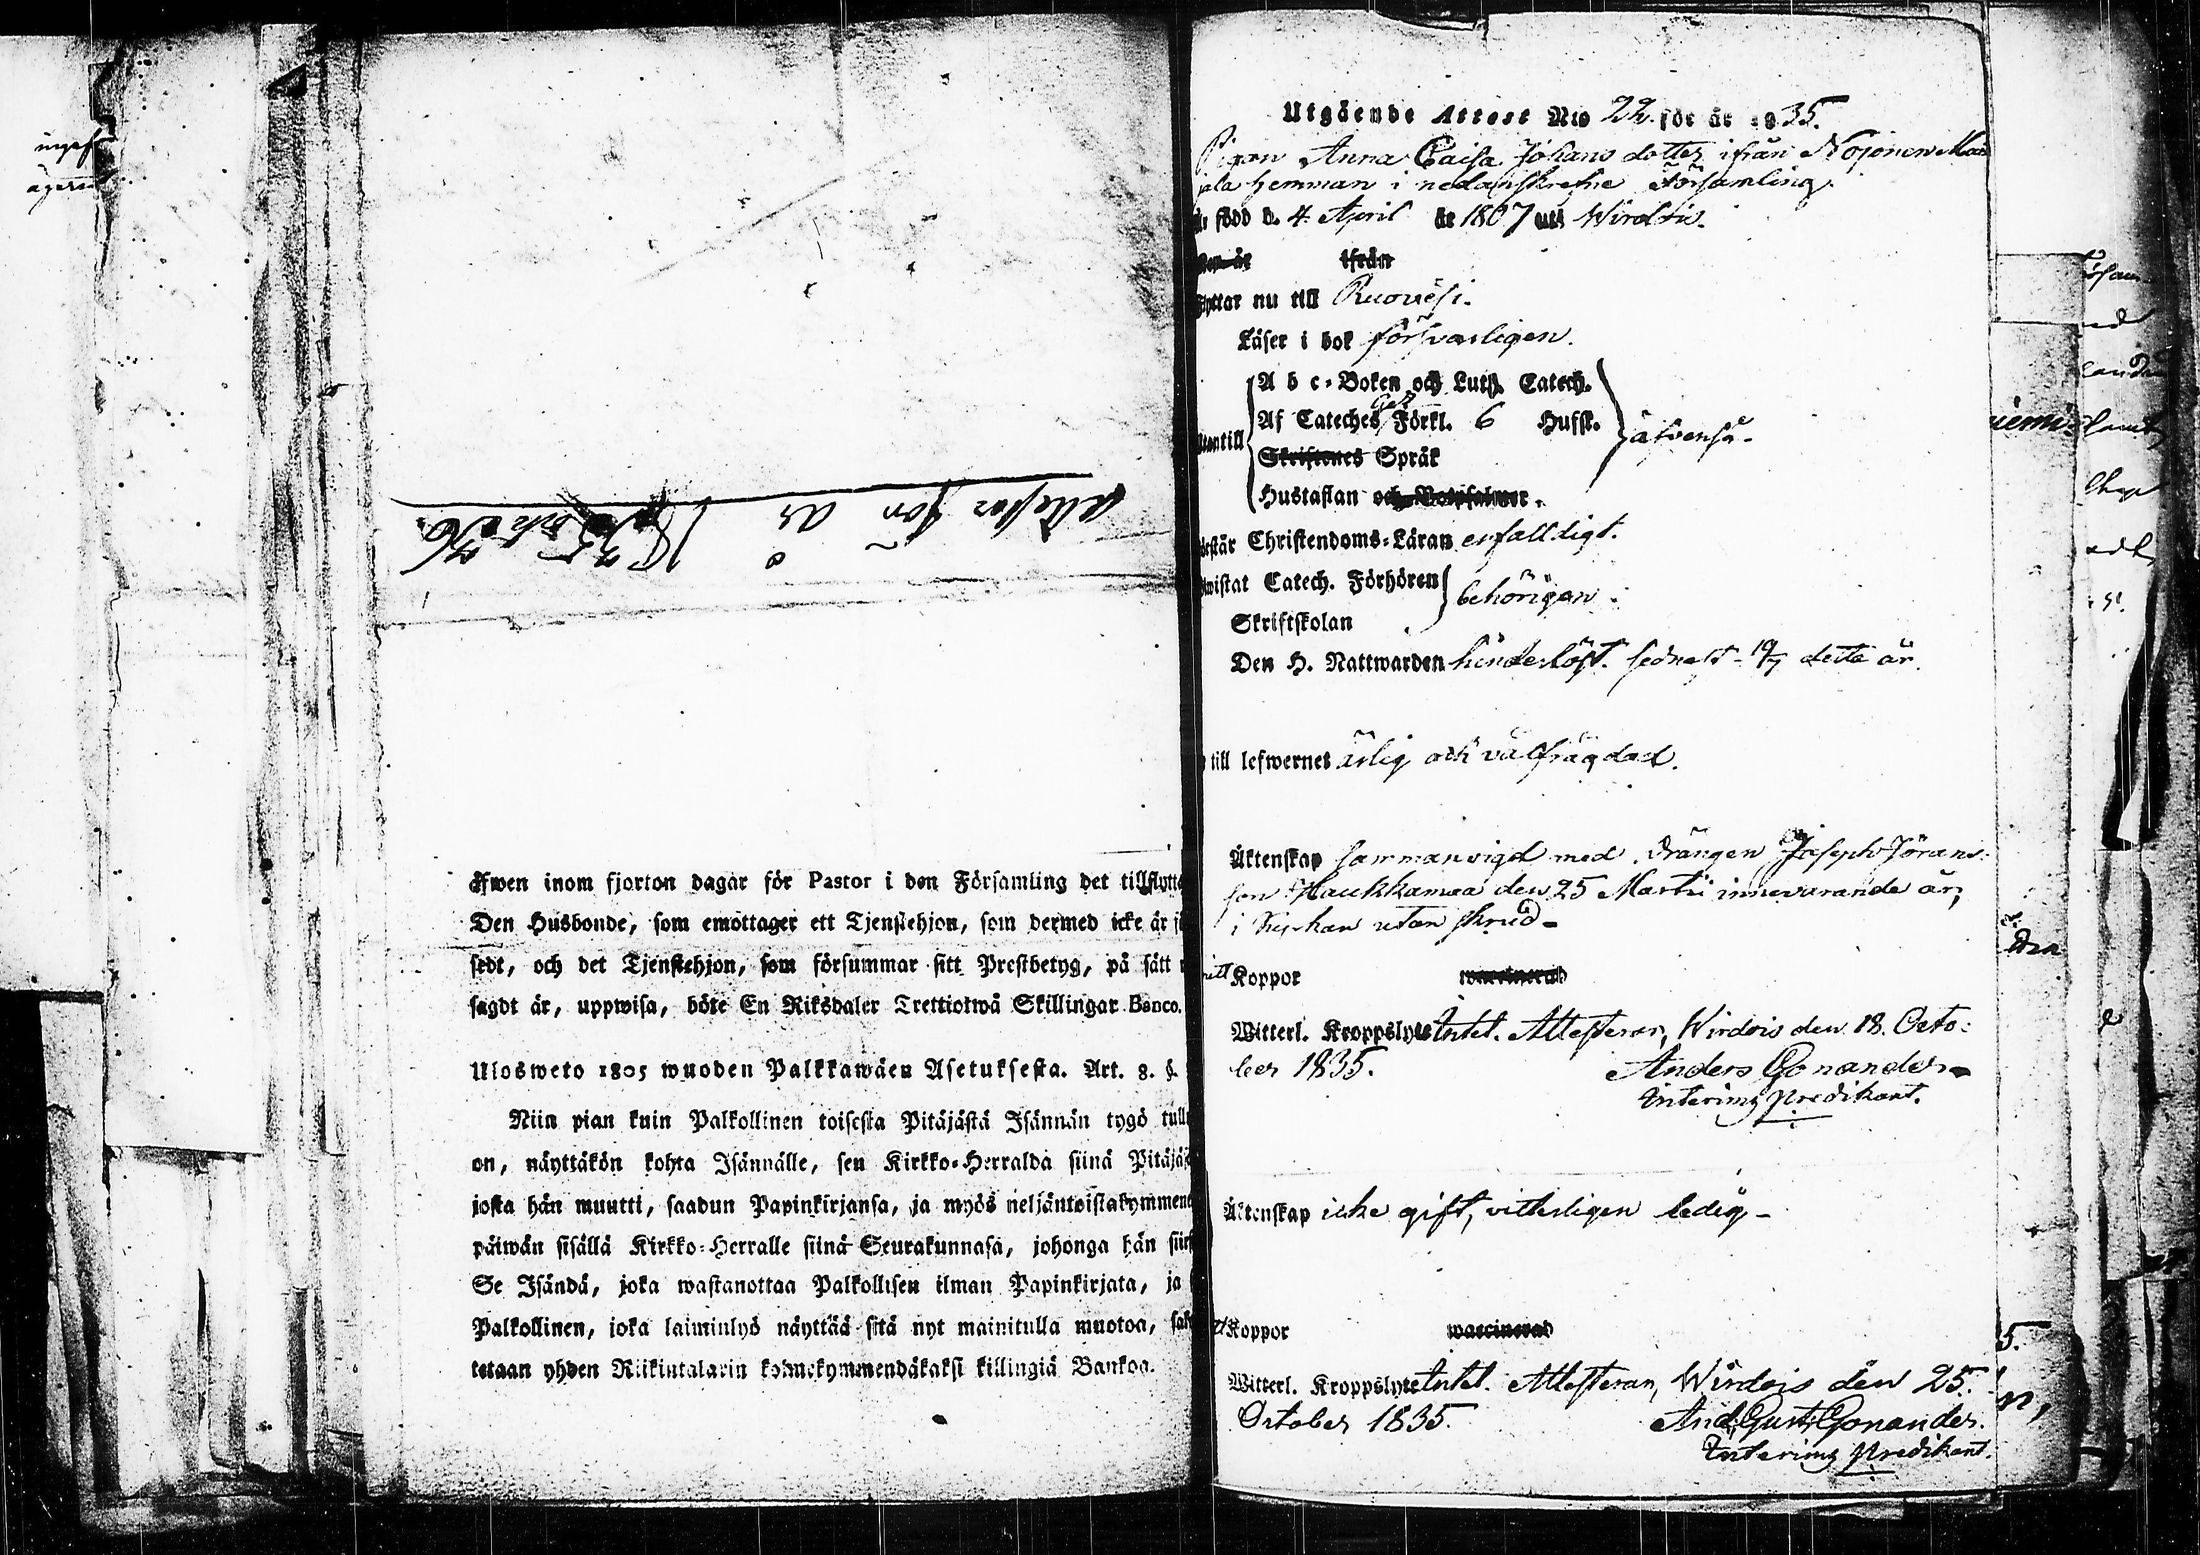 Attester för år 1835 och 36.
äfwen inom fjorton dagar för Pastor i den Församling det tillflytta
Den Husbonde, som emottager ett Tjenstehjon, som dermed icke är
sedt, och det Tjenstehjon, som försummar sitt Prestbetyg, på sätt
sagdt är, uppwisa, böte En Riksdaler Trettiotwå Skillingar Banco.
Ulosweto 1805 wuoden Palkkawäen Asetuksesta. Art. 8. §.
Niin pian kuin Palkollinen toisesta Pitäjästä Isännän tygö tullu
on, näyttäkön kohta Isännälle, sen Kirkko-Herralda siinä Pitäjäs
josta hän muutti, saadun Papinkirjansa, ja myös neljäntoistakymmene
päiwän sisällä Kirkko-Herralle siinä Seurakunnasa, johonga hän siir
Se Isändä, joka wastanottaa Palkollisen ilman Papinkirjata, ja
Palkollinen, joka laiminlyö näyttää sitä nyt mainitulla muotoa, sak
tetaan yhden Riikintalarin kolmekymmendäkaksi killingiä Bankoa.
Utgående Attest N:o 22. för år 1835.
Pigan Anna Caisa Johans dotter ifrån Nojonen Mar
jala hemman i nedanskrefne Församling.
är född d. 4. April år 1807 uti Wirdois.
ifrån
flyttar nu till Ruovesi.
Läser i bok försvarligen.
A b c-Boken och Luth. Catech.
Af Cateches Förkl. 6 Hufst.
äfvenså.
Utantill
Skriftenes Språk
Hustaflan och Botpsalmer.
förstår Christendoms-Läran enfalldigt.
bewistat Catech. Förhören
behörigen.
Skriftskolan
Den H. Nattwarden hinderlöst. sednast 19/7 detta år.
till lefwernes ärlig och välfrägdad.
Äktenskap sammanvigd med drängen Joseph Jörans-
son Haukkamaa den 25 Martii innevarande år,
i kyrkan utan skrud.
Koppor waccinerad
Witterl. Kroppslyte Intet. Attesterar, Wirdois den 18. Octo-
ber 1835. Anders Gonander
Interims Predikant.
Äktenskap icke gift, vitterligen ledig.
Koppor waccinerad
Witterl. Kroppslyte Intet. Attesteran, Wirdois den 25.
October 1835. And. Gust. Gonander.
Interims Predikant.